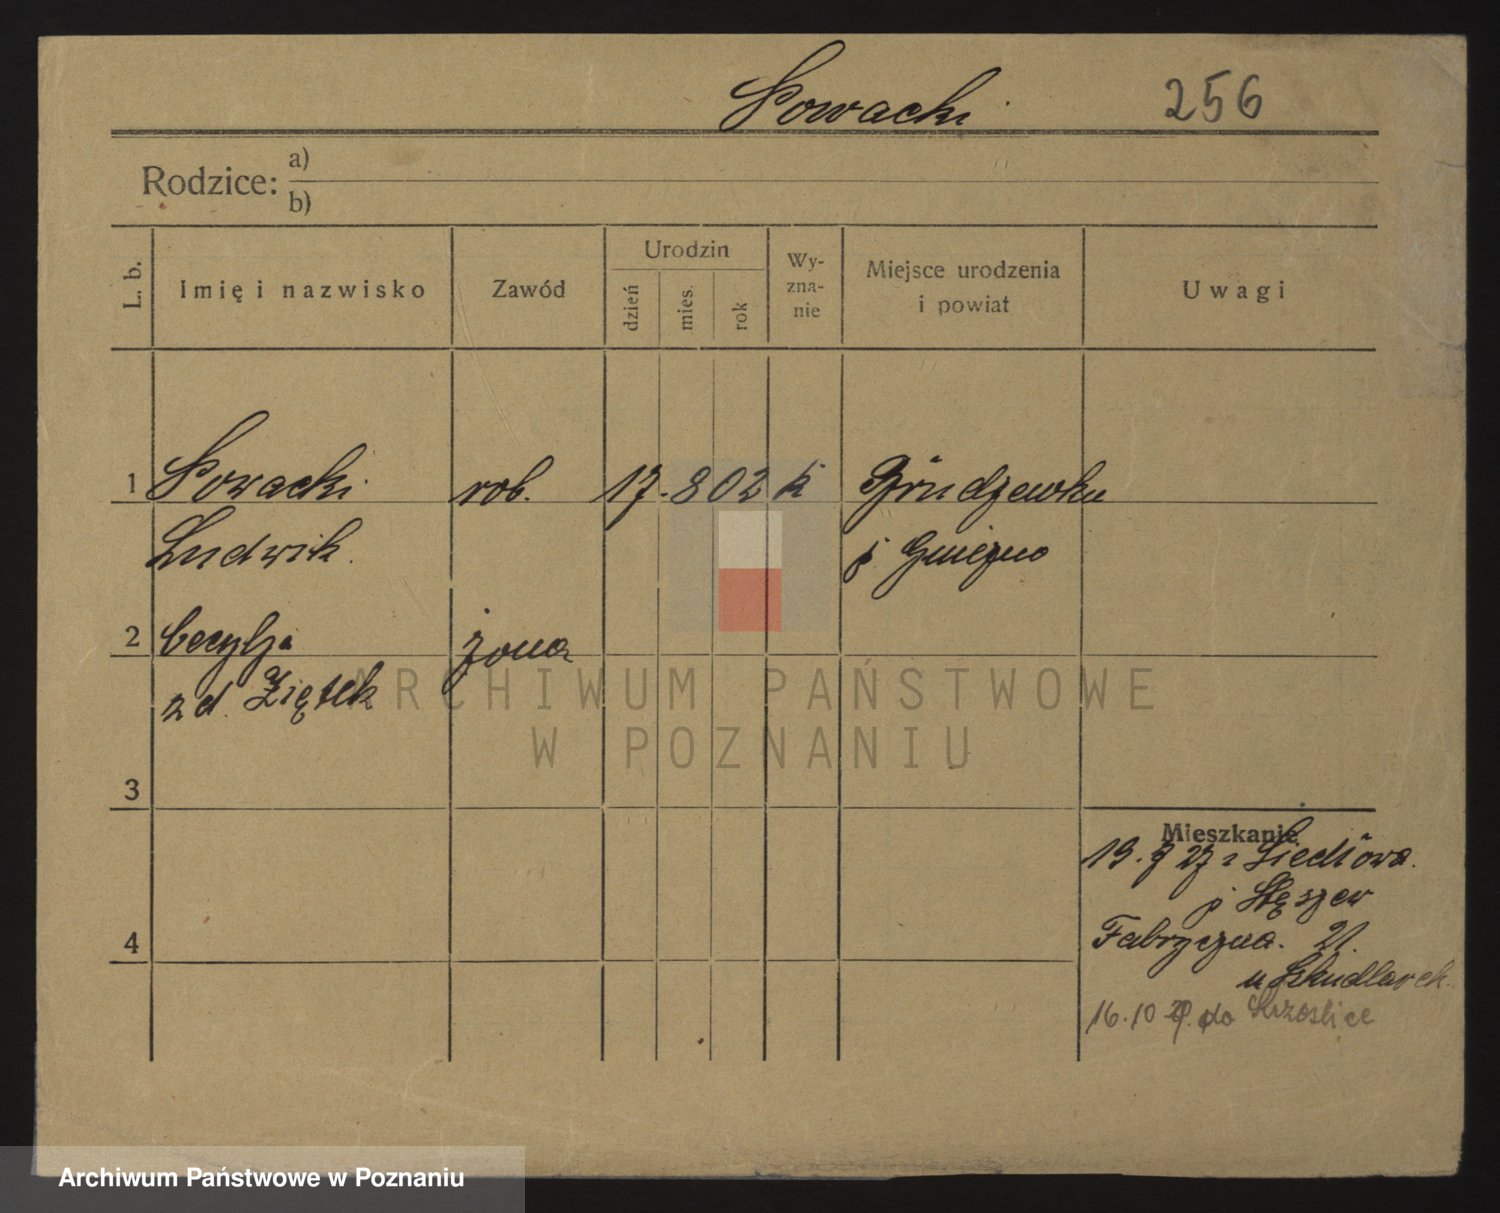 Sowacki
256
Rodzice: a)
b)
L. b.
Imię i nazwisko
Zawód
Urodzin
dzień
mies.
rok
Wy-
zna-
nie
Miejsce urodzenia
i powiat
Uwagi
1 Sowacki rob. 17. 8 02 k Grudzewku
Ludwik. p Gniezno
2 Cecylja żona
z d. Ziętek
3
Mieszkanie
19. 9 27 z
p Stęszew
4 Fabryczna. 21.
u Szkudlarek.
16.10 do
ARCHIWUM PAŃSTWOWE
W POZNANIU
Archiwum Państwowe w Poznaniu